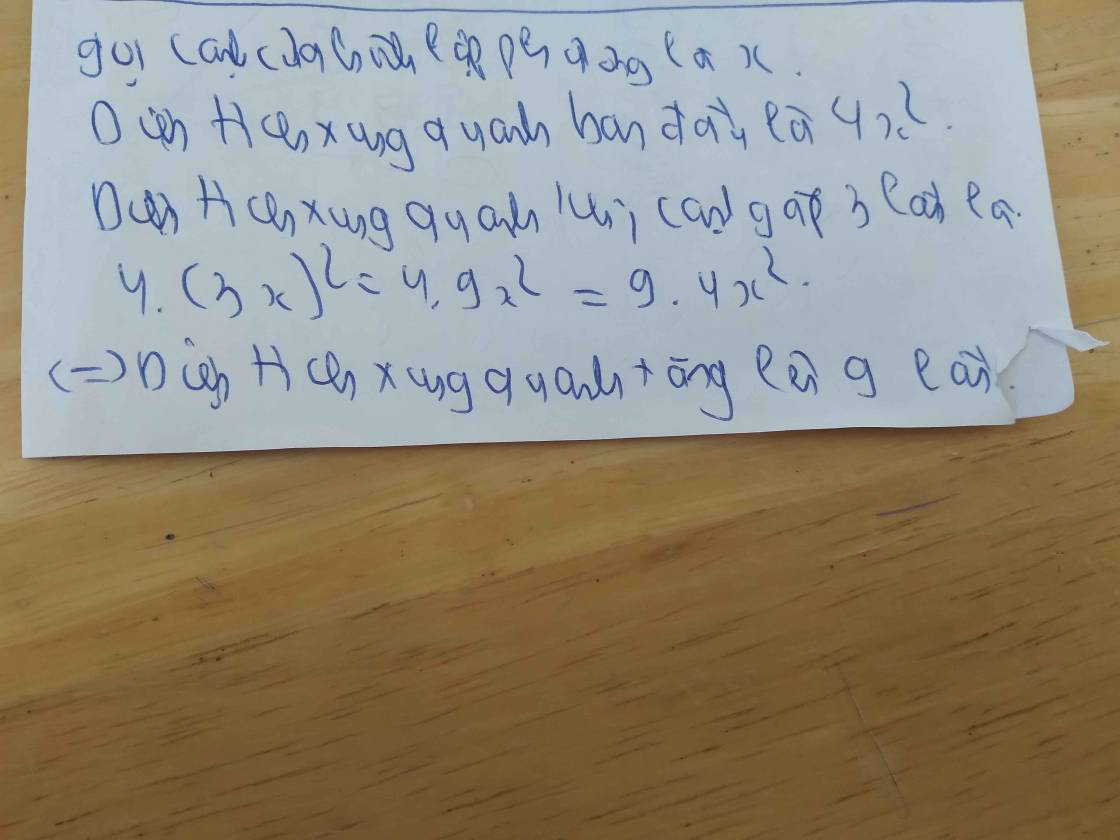 gọi cạnh của hình lập phương là x.
Diện tích xung quanh ban đầu là 4x².
Diện tích xung quanh khi cạnh gấp 3 lần là.
4.(3x)² = 4.9x² = 9.4x².
<=> Diện tích xung quanh tăng lên 9 lần.